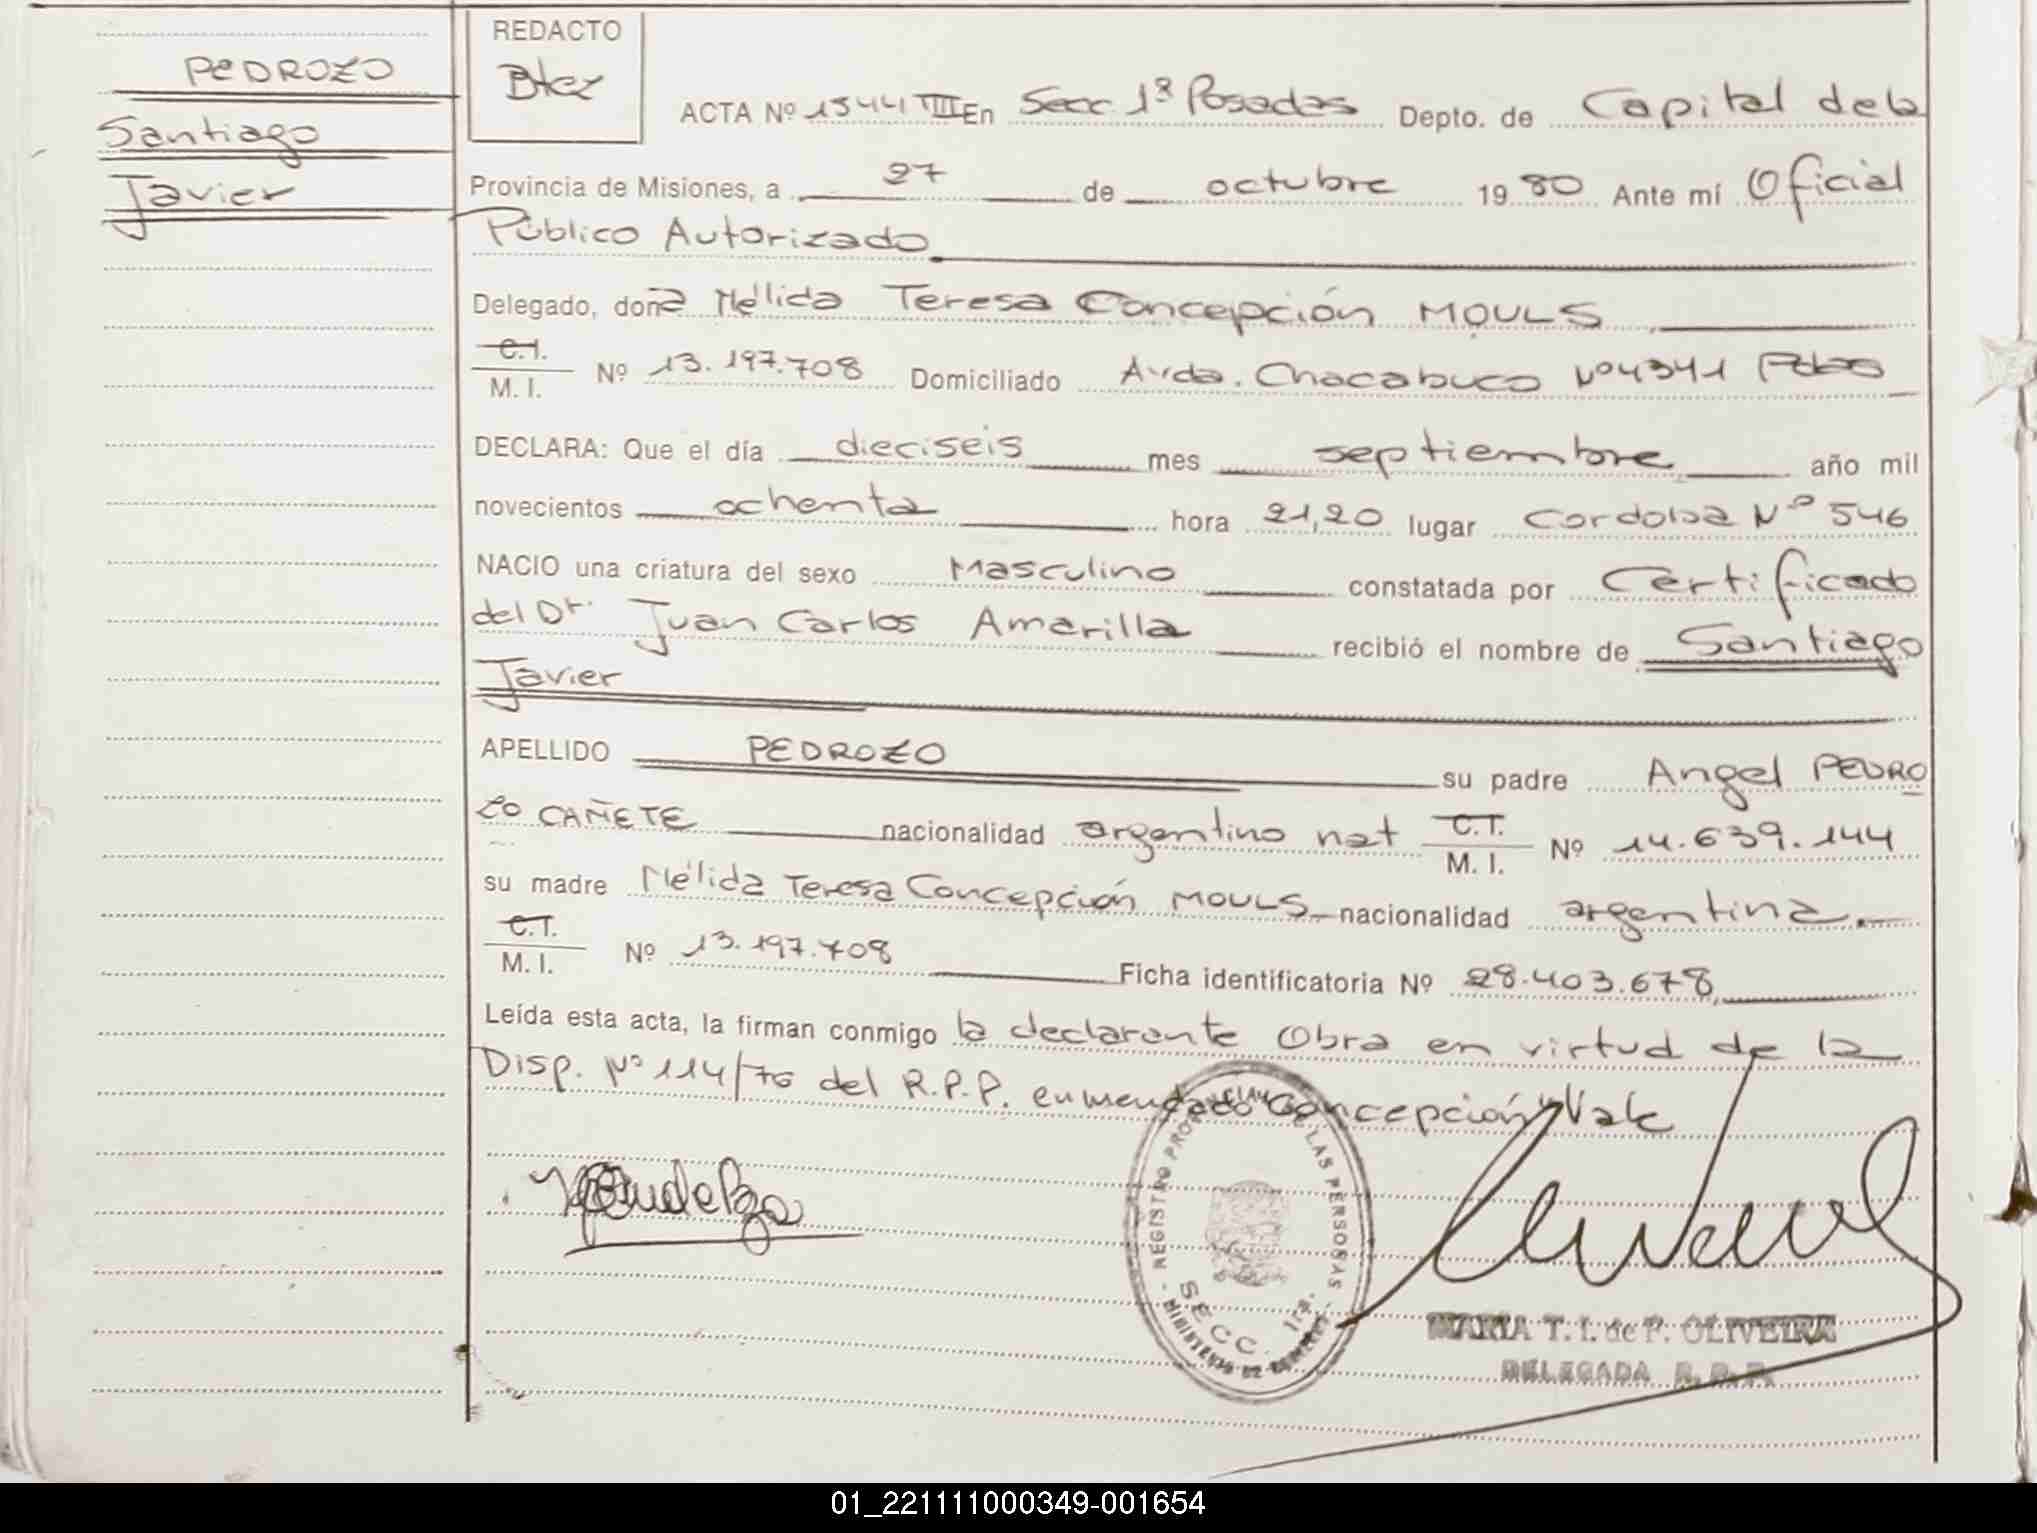 PEDROZO
Santiago
Javier
REDACTO
Btez
ACTA Nº 1544 TIII En Secc 1ª Posadas Depto. de Capital de la
Provincia de Misiones, a 27 de octubre 1980 Ante mí Oficial
Público Autorizado
Delegado, doña Nélida Teresa Concepción MOULS
C.I.
M. I. Nº 13.197.708 Domiciliado Avda. Chacabuco Nº 4341 Pdas
DECLARA: Que el día dieciseis mes septiembre año mil
novecientos ochenta hora 21,20 lugar Cordoba Nº 546
NACIO una criatura del sexo Masculino constatada por Certificado
del Dr. Juan Carlos Amarilla recibió el nombre de Santiago
Javier
APELLIDO PEDROZO su padre Angel PEDRO
ZO CAÑETE nacionalidad argentino nat C.I. M. I. Nº 14.639.144
su madre Nélida Teresa Concepción MOULS nacionalidad argentina.
C.I.
M. I. Nº 13.197.708 Ficha identificatoria Nº 28.403.678
Leída esta acta, la firman conmigo la declarante Obra en virtud de la
Disp. Nº 114/76 del R.P.P. enmendado "Concepción" Vale
REGISTRO PROVINCIAL DE LAS PERSONAS
SECC. 1ra.
MINISTERIO DE GOBIERNO
MARIA T. I. de P. OLIVEIRA
DELEGADA R. P. P.
01_221111000349-001654